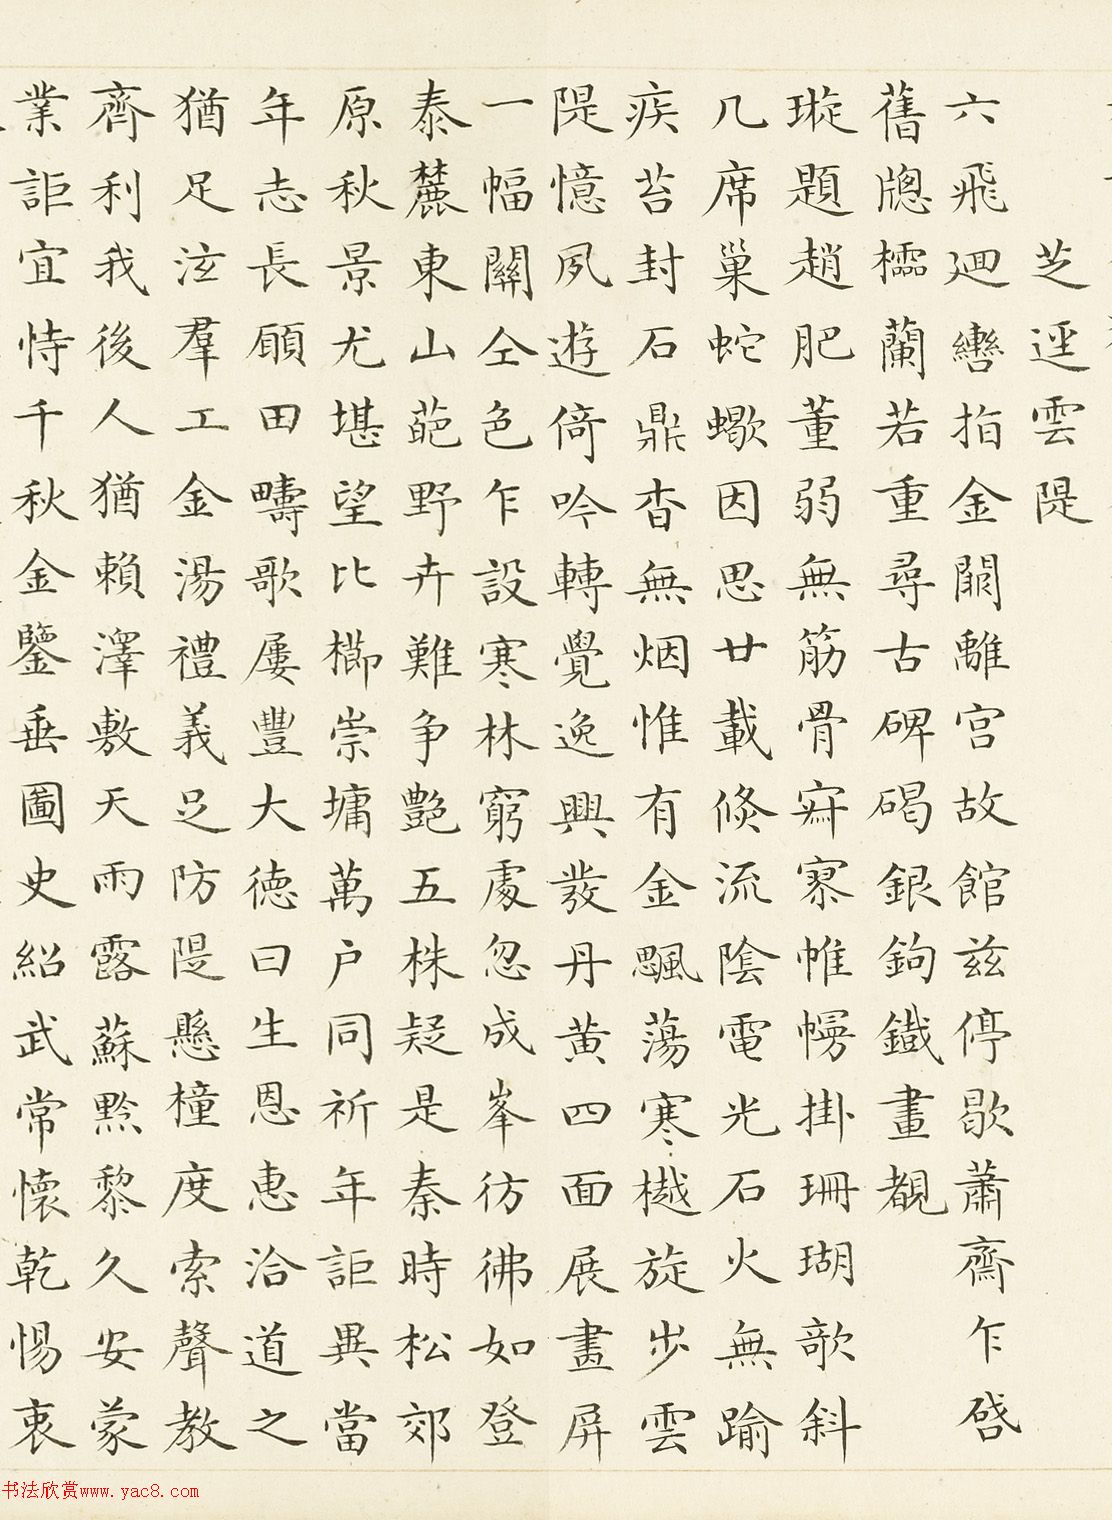 芝逕雲隄
六飛迴轡指金闕離宮故館茲停歇蕭齋乍啓
舊牕櫺蘭若重尋古碑碣銀鉤鐵畫覩
璇題趙肥董弱無筋骨寮帷幌掛珊瑚欹斜
几席巢蛇蠍因思廿載倏流陰電光石火無踰
疾苔封石鼎杳無烟惟有金飈蕩寒樾旋步雲
隄憶夙遊倚吟轉覺逸興發丹黃四面展畫屏
一幅關仝色乍設寒林窮處忽成峯彷彿如登
泰麓東山葩野卉難爭艷五株疑是秦時松郊
原秋景尤堪望比櫛崇墉萬户同祈年詎異當
年志長願田疇歌屢豐大德曰生恩惠洽道之
猶足泣羣工金湯禮義足防隄懸橦度索聲教
齊利我後人猶賴澤敷天雨露蘇黔黎久安蒙
業詎宜恃千秋金鑒垂圖史紹武常懷乾惕衷
书法欣赏www.yac8.com